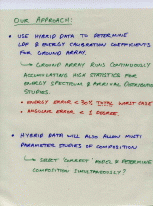 OUR APPROACH:
• USE HYBRID DATA TO DETERMINE
LDF & ENERGY CALIBRATION COEFFICIENTS
FOR GROUND ARRAY.
↳ GROUND ARRAY RUNS CONTINUOUSLY
ACCUMULATING HIGH STATISTICS FOR
ENERGY SPECTRUM & ARRIVAL DIRECTIONS
STUDIES.
• ENERGY ERROR < 30% TOTAL WORST CASE
• ANGULAR ERROR < 1 DEGREE.
• HYBRID DATA WILL ALSO ALLOW MULTI
PARAMETER STUDIES OF COMPOSITION
↳ SELECT "CORRECT" MODEL & DETERMINE
COMPOSITION SIMULTANEOUSLY?